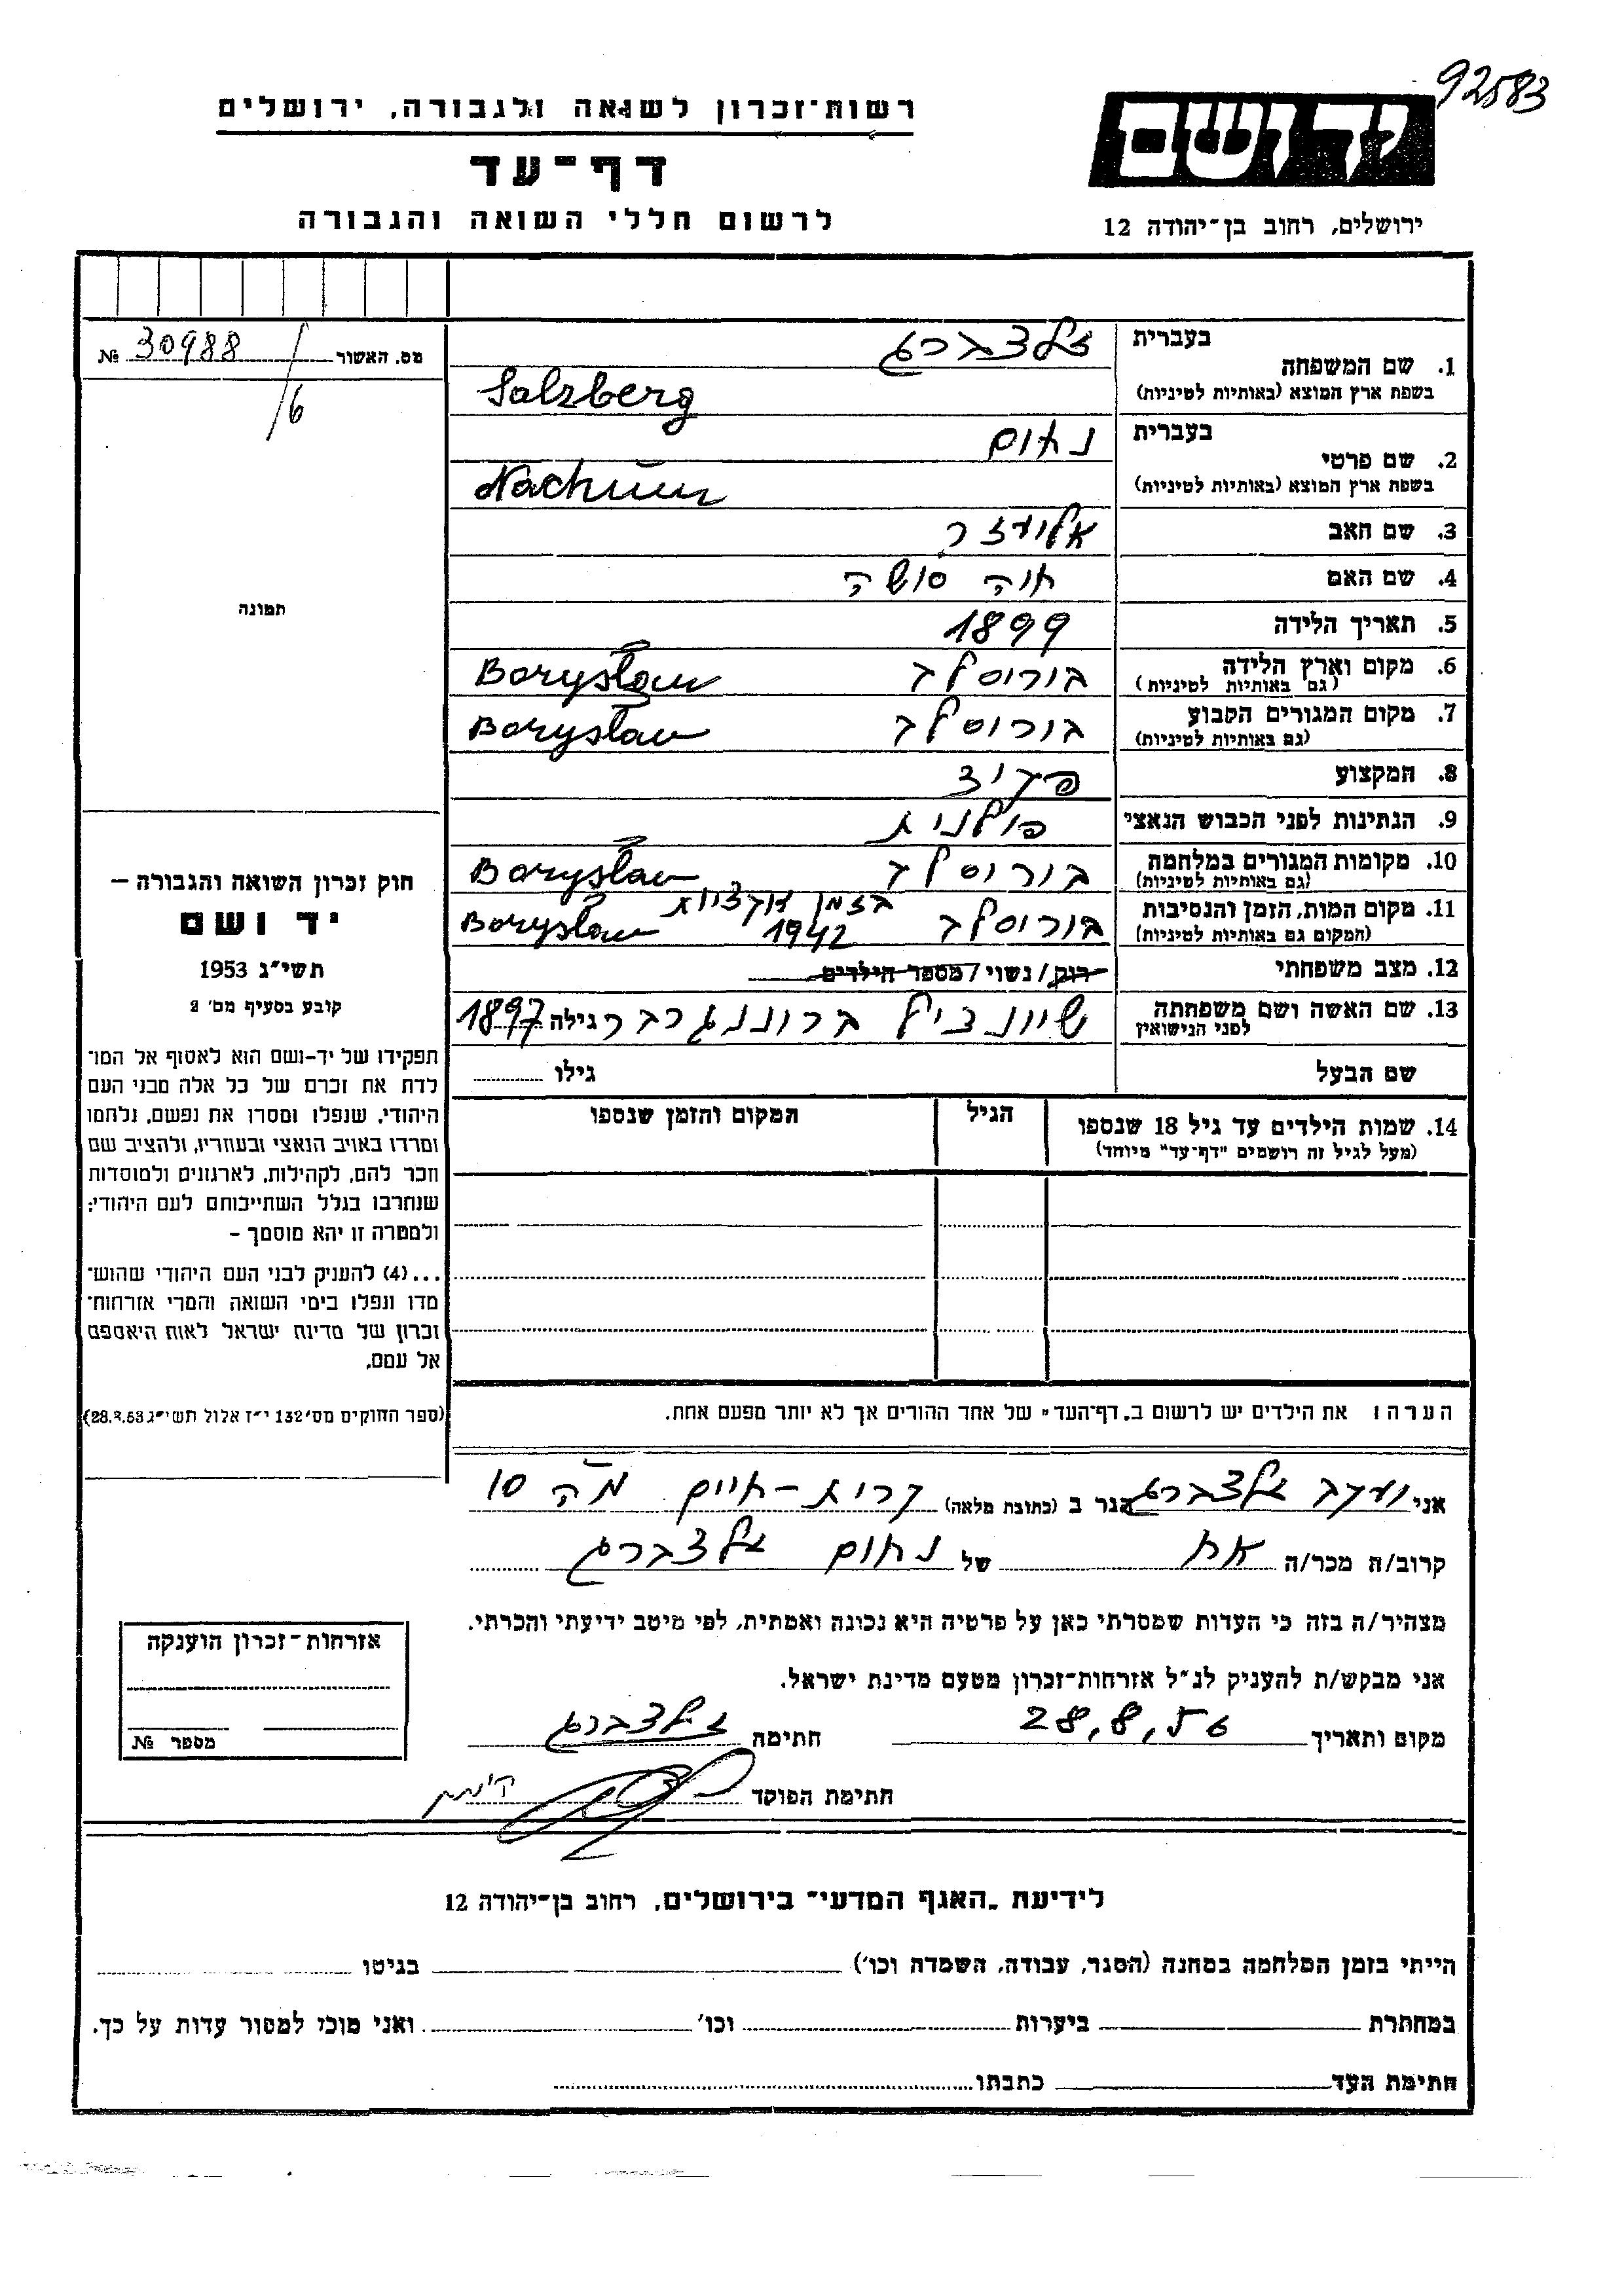 92583
רשות-זכרון לשואה ולגבורה, ירושלים
יד ושם
דף-עד
לרשום חללי השואה והגבורה
ירושלים, רחוב בן-יהודה 12
מס. האשור 30988 №
/6
תמונה
בעברית זלצברג
1. שם המשפחה
בשפת ארץ המוצא (באותיות לטיניות) Salzberg
בעברית נחום
2. שם פרטי
בשפת ארץ המוצא (באותיות לטיניות) Nachum
3. שם האב אליעזר
4. שם האם חוה סושה
5. תאריך הלידה 1899
6. מקום וארץ הלידה בוריסלב Borysław
(גם באותיות לטיניות)
7. מקום המגורים הקבוע בוריסלב Borysław
(גם באותיות לטיניות)
8. המקצוע פקיד
9. הנתינות לפני הכבוש הנאצי פולנית
10. מקומות המגורים במלחמה בוריסלב Borysław
(גם באותיות לטיניות)
11. מקום המות, הזמן והנסיבות בוריסלב בזמן אקציות 1942 Borysław
(המקום גם באותיות לטיניות)
12. מצב משפחתי רוק/נשוי/מספר הילדים
13. שם האשה ושם משפחתה גילה 1897
לפני הנישואין
שם הבעל גילו
14. שמות הילדים עד גיל 18 שנספו הגיל המקום והזמן שנספו
(מעל לגיל זה רושמים "דף-עד" מיוחד)
הערה: את הילדים יש לרשום ב„דף-העד" של אחד ההורים אך לא יותר מפעם אחת.
חוק זכרון השואה והגבורה —
יד ושם
תשי"ג 1953
קובע בסעיף מס' 2
תפקידו של יד-ושם הוא לאסוף אל המו־
לדת את זכרם של כל אלה מבני העם
היהודי, שנפלו ומסרו את נפשם, נלחמו
ומרדו באויב הנאצי ובעוזריו, ולהציב שם
וזכר להם, לקהילות, לארגונים ולמוסדות
שנחרבו בגלל השתייכותם לעם היהודי;
ולמטרה זו יהא מוסמך —
...(4) להעניק לבני העם היהודי שהוש־
מדו ונפלו בימי השואה והמרי אזרחות־
זכרון של מדינת ישראל לאות היאספם
אל עמם.
(ספר החוקים מס' 132 י"ז אלול תשי"ג 28.8.53)
אני יעקב זלצברג הגר ב (כתובת מלאה) קרית-חיים 10
קרוב/ה מכר/ה אח של נחום זלצברג
מצהיר/ה בזה כי העדות שמסרתי כאן על פרטיה היא נכונה ואמתית, לפי מיטב ידיעתי והכרתי.
אני מבקש/ת להעניק לנ"ל אזרחות-זכרון מטעם מדינת ישראל.
מקום ותאריך 28.8.56 חתימה זלצברג
חתימת הפוקד
אזרחות-זכרון הוענקה
מספר №
לידיעת „האגף המדעי" בירושלים, רחוב בן-יהודה 12
הייתי בזמן המלחמה במחנה (הסגר, עבודה, השמדה וכו') בגיטו
במחתרת ביערות וכו' ואני מוכן למסור עדות על כך.
חתימת העד כתבתו